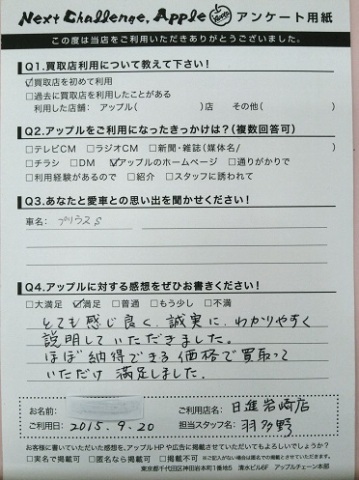 Next Challenge, Apple アンケート用紙
この度は当店をご利用いただきありがとうございました。
Q1.買取店利用について教えて下さい!
☑買取店を初めて利用
□過去に買取店を利用したことがある
利用した店舗： アップル( )店 その他( )
Q2.アップルをご利用になったきっかけは?(複数回答可)
□テレビCM □ラジオCM □新聞・雑誌(媒体名/ )
□チラシ □DM ☑アップルのホームページ □通りがかりで
□利用経験があるので □紹介 □スタッフに誘われて
Q3.あなたと愛車との思い出を聞かせください!
車名： プリウスS
Q4.アップルに対する感想をぜひお書きください!
□大満足 ☑満足 □普通 □もう少し □不満
とても感じ良く、誠実に、わかりやすく
説明していただきました。
ほぼ納得できる価格で買取って
いただけ 満足しました。
お名前：
ご利用店名： 日進岩崎店
ご利用日： 2015.9.20
担当スタッフ名： 羽多野
お客様に書いていただいた感想を、アップルHPや広告に掲載させていただいてもよろしいですか?
□実名で掲載可 □匿名なら掲載可 □掲載不可 ※ご記入がない場合は匿名での掲載とさせていただきます。
東京都千代田区神田岩本町1番地5 清水ビル6F アップルチェーン本部